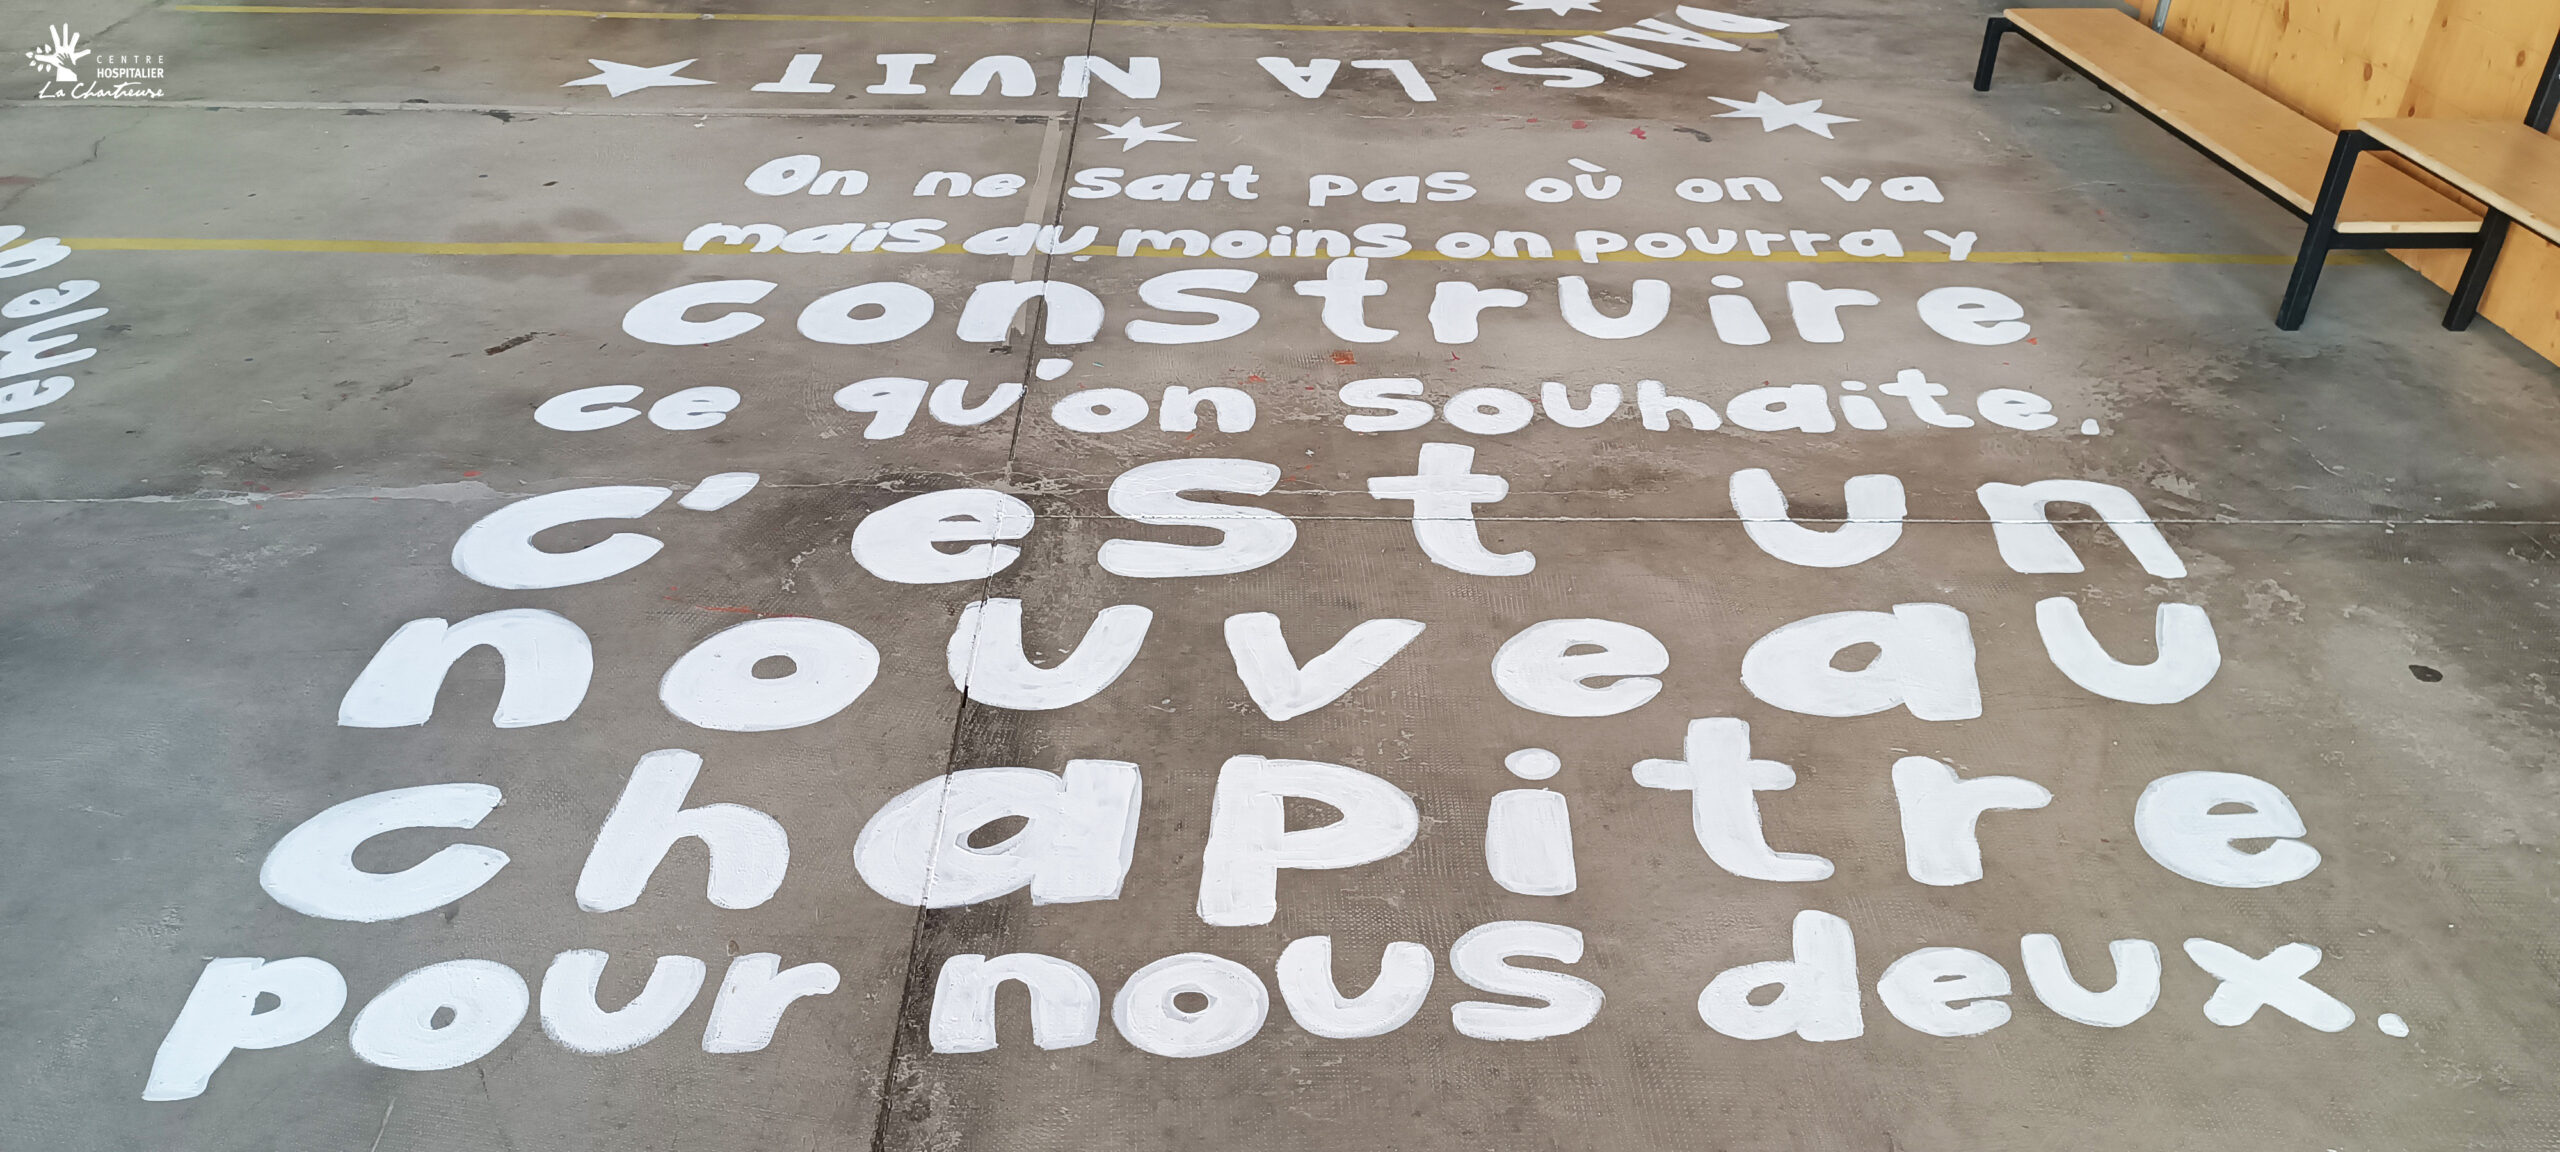 CENTRE
HOSPITALIER
La Chartreuse
DANS LA NUIT
On ne sait pas où on va
mais au moins on pourra y
construire
ce qu'on souhaite.
c'est un
nouveau
chapitre
pour nous deux.